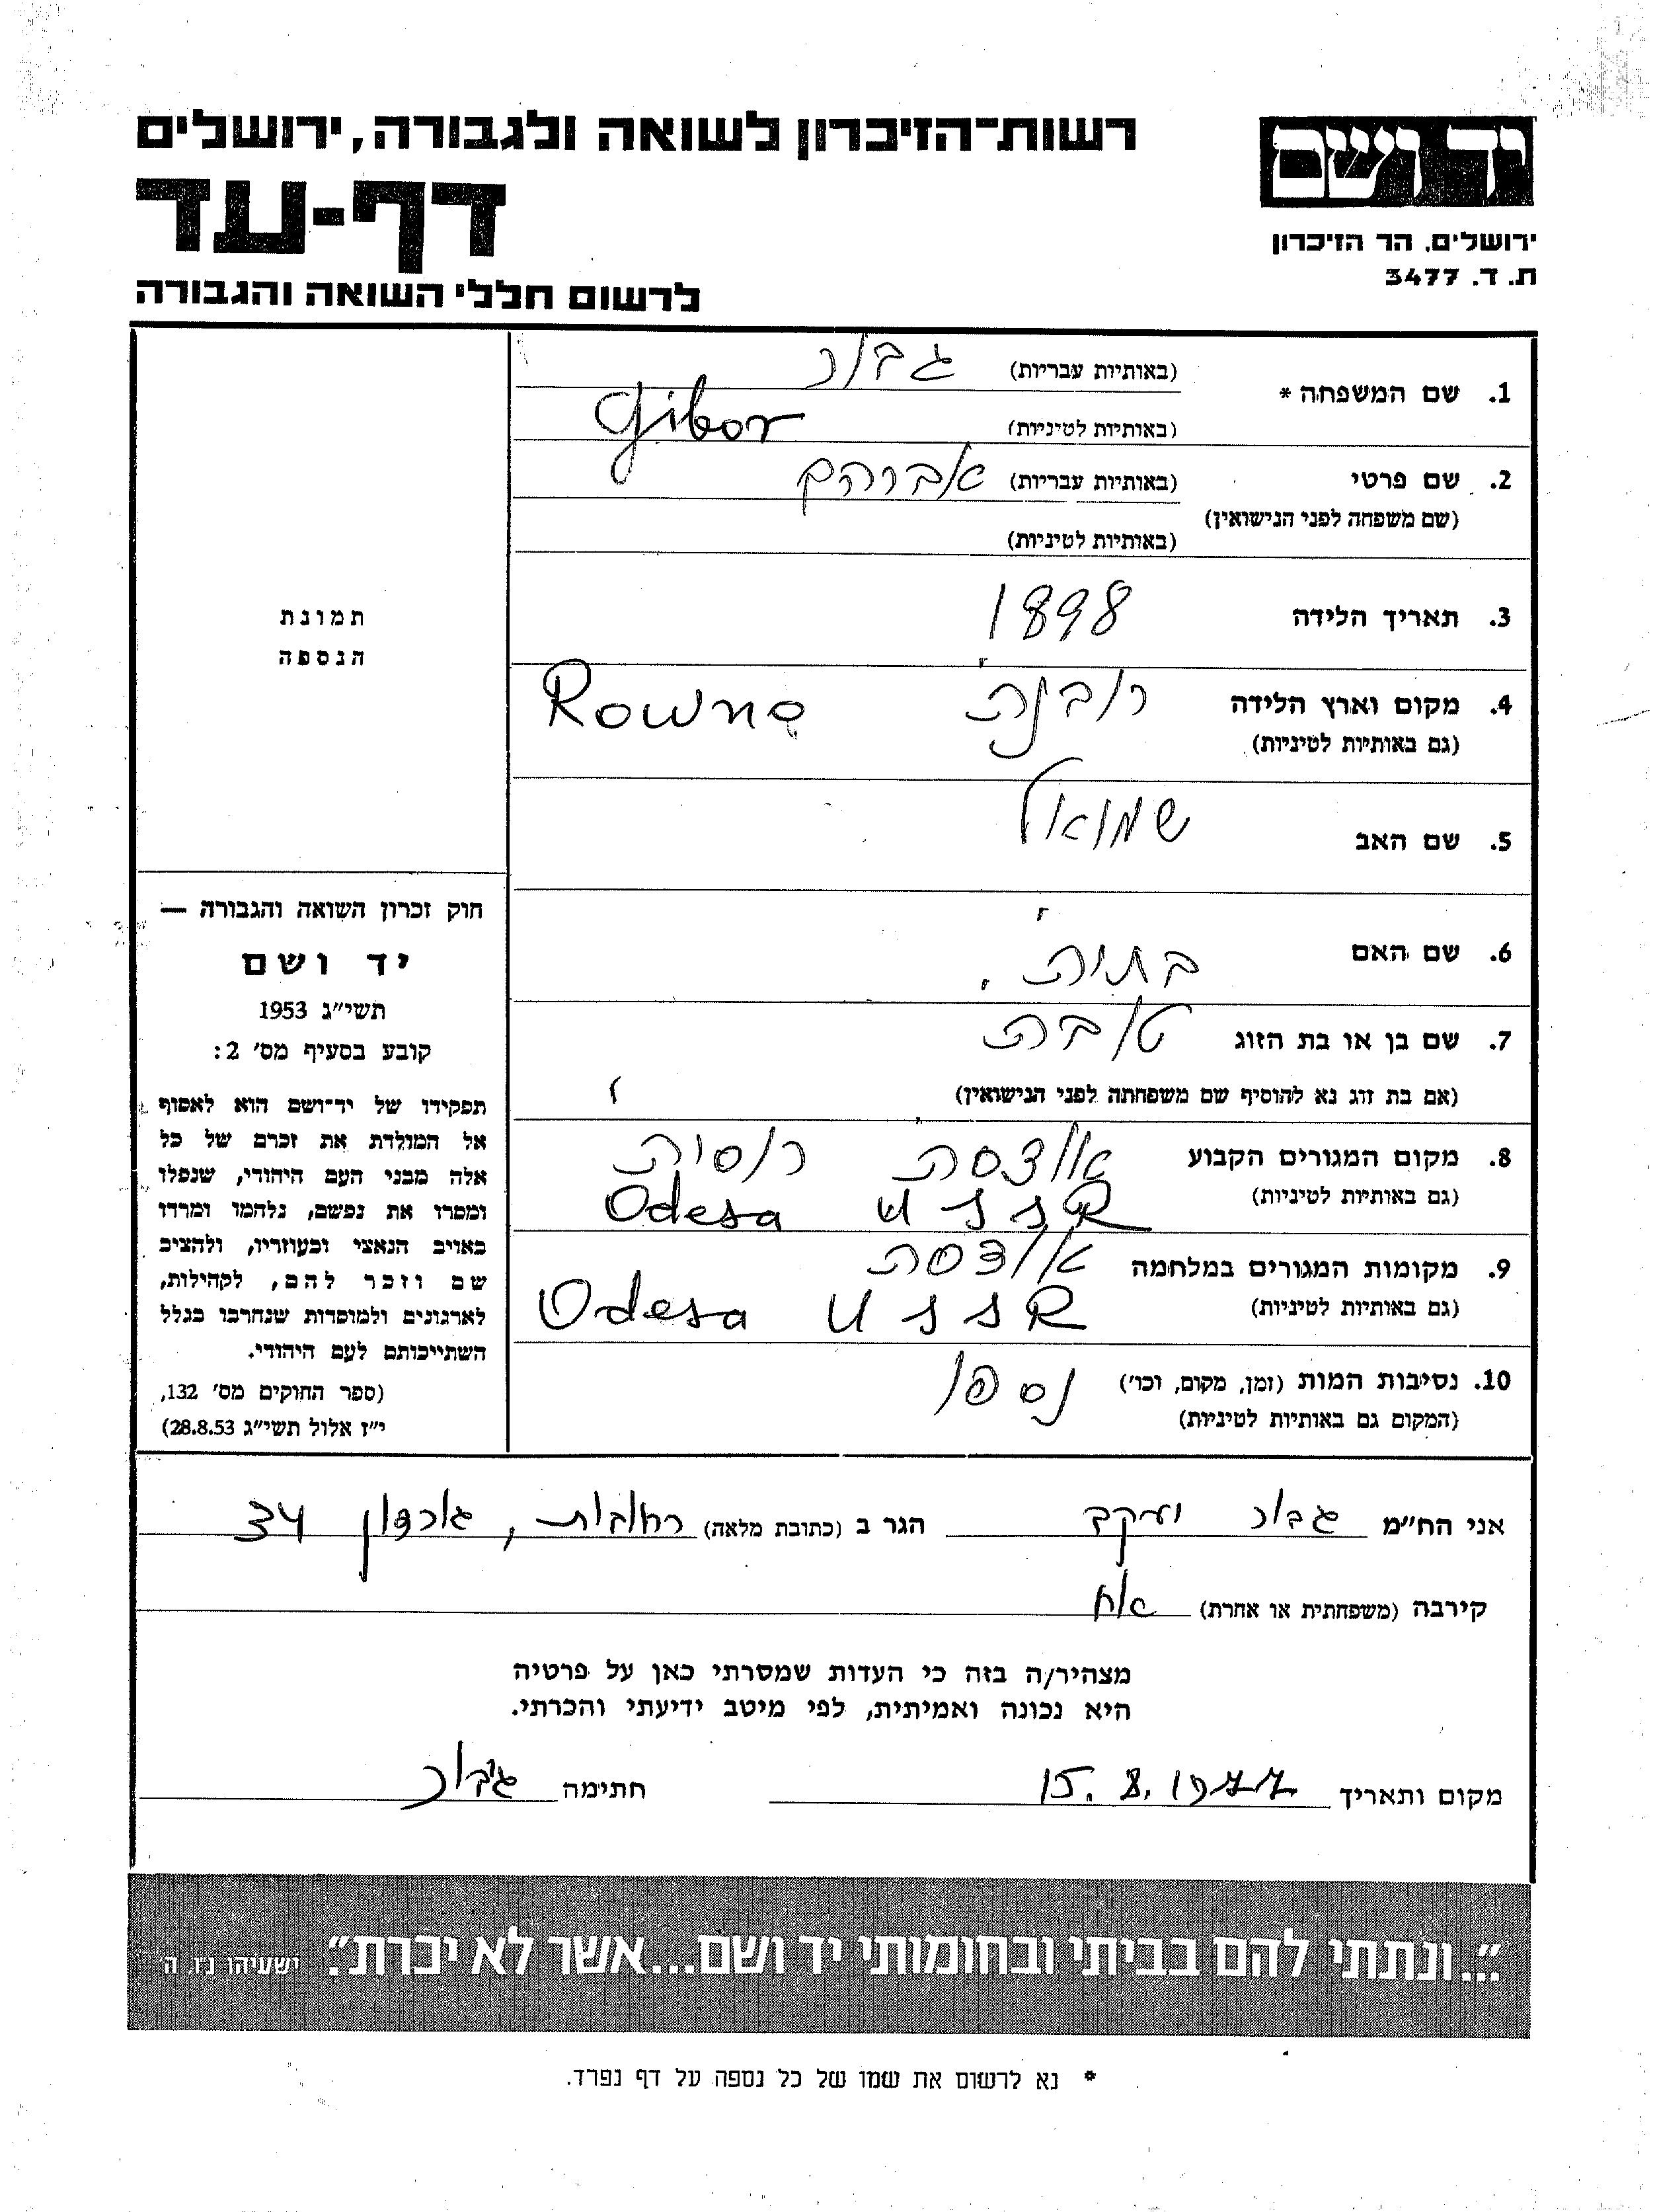 רשות-הזיכרון לשואה ולגבורה, ירושלים
דף-עד
לרשום חללי השואה והגבורה
יד ושם
ירושלים, הר הזיכרון
ת. ד. 3477
1. שם המשפחה * (באותיות עבריות) גבור
(באותיות לטיניות) Gibor
2. שם פרטי (באותיות עבריות) אברהם
(שם משפחה לפני הנישואין)
(באותיות לטיניות)
3. תאריך הלידה 1898
4. מקום וארץ הלידה רובנה Rowno
(גם באותיות לטיניות)
5. שם האב שמואל
6. שם האם בתיה
7. שם בן או בת הזוג טובה
(אם בת זוג נא להוסיף שם משפחתה לפני הנישואין)
8. מקום המגורים הקבוע אודסה רוסיה
(גם באותיות לטיניות) Odesa USSR
9. מקומות המגורים במלחמה אודסה
(גם באותיות לטיניות) Odesa USSR
10. נסיבות המות (זמן, מקום, וכו') נספו
(המקום גם באותיות לטיניות)
תמונת
הנספה
חוק זכרון השואה והגבורה —
יד ושם
תשי"ג 1953
קובע בסעיף מס' 2:
תפקידו של יד-ושם הוא לאסוף
אל המולדת את זכרם של כל
אלה מבני העם היהודי, שנפלו
ומסרו את נפשם, נלחמו ומרדו
באויב הנאצי ובעוזריו, ולהציב
שם וזכר להם, לקהילות,
לארגונים ולמוסדות שנחרבו בגלל
השתייכותם לעם היהודי.
(ספר החוקים מס' 132,
י"ז אלול תשי"ג 28.8.53)
אני הח"מ גבור יעקב הגר ב (כתובת מלאה) רחובות, גורדון 34
קירבה (משפחתית או אחרת) אח
מצהיר/ה בזה כי העדות שמסרתי כאן על פרטיה
היא נכונה ואמיתית, לפי מיטב ידיעתי והכרתי.
מקום ותאריך 15.8.1977 חתימה גיבור
"...ונתתי להם בביתי ובחומותי יד ושם...אשר לא יכרת". ישעיהו נ"ו, ה
* נא לרשום את שמו של כל נספה על דף נפרד.